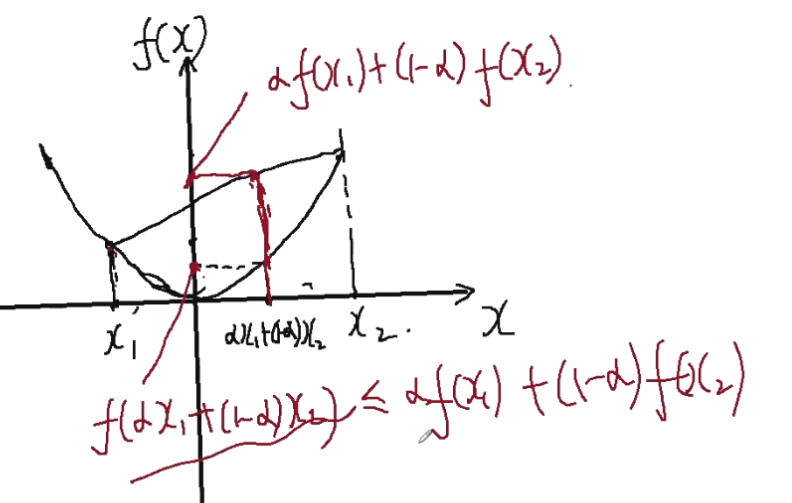 f(x)
αf(x₁)+(1-α)f(x₂).
x₁
αx₁+(1-α)x₂
x₂.
x
f(αx₁+(1-α)x₂) ≤ αf(x₁)+(1-α)f(x₂)